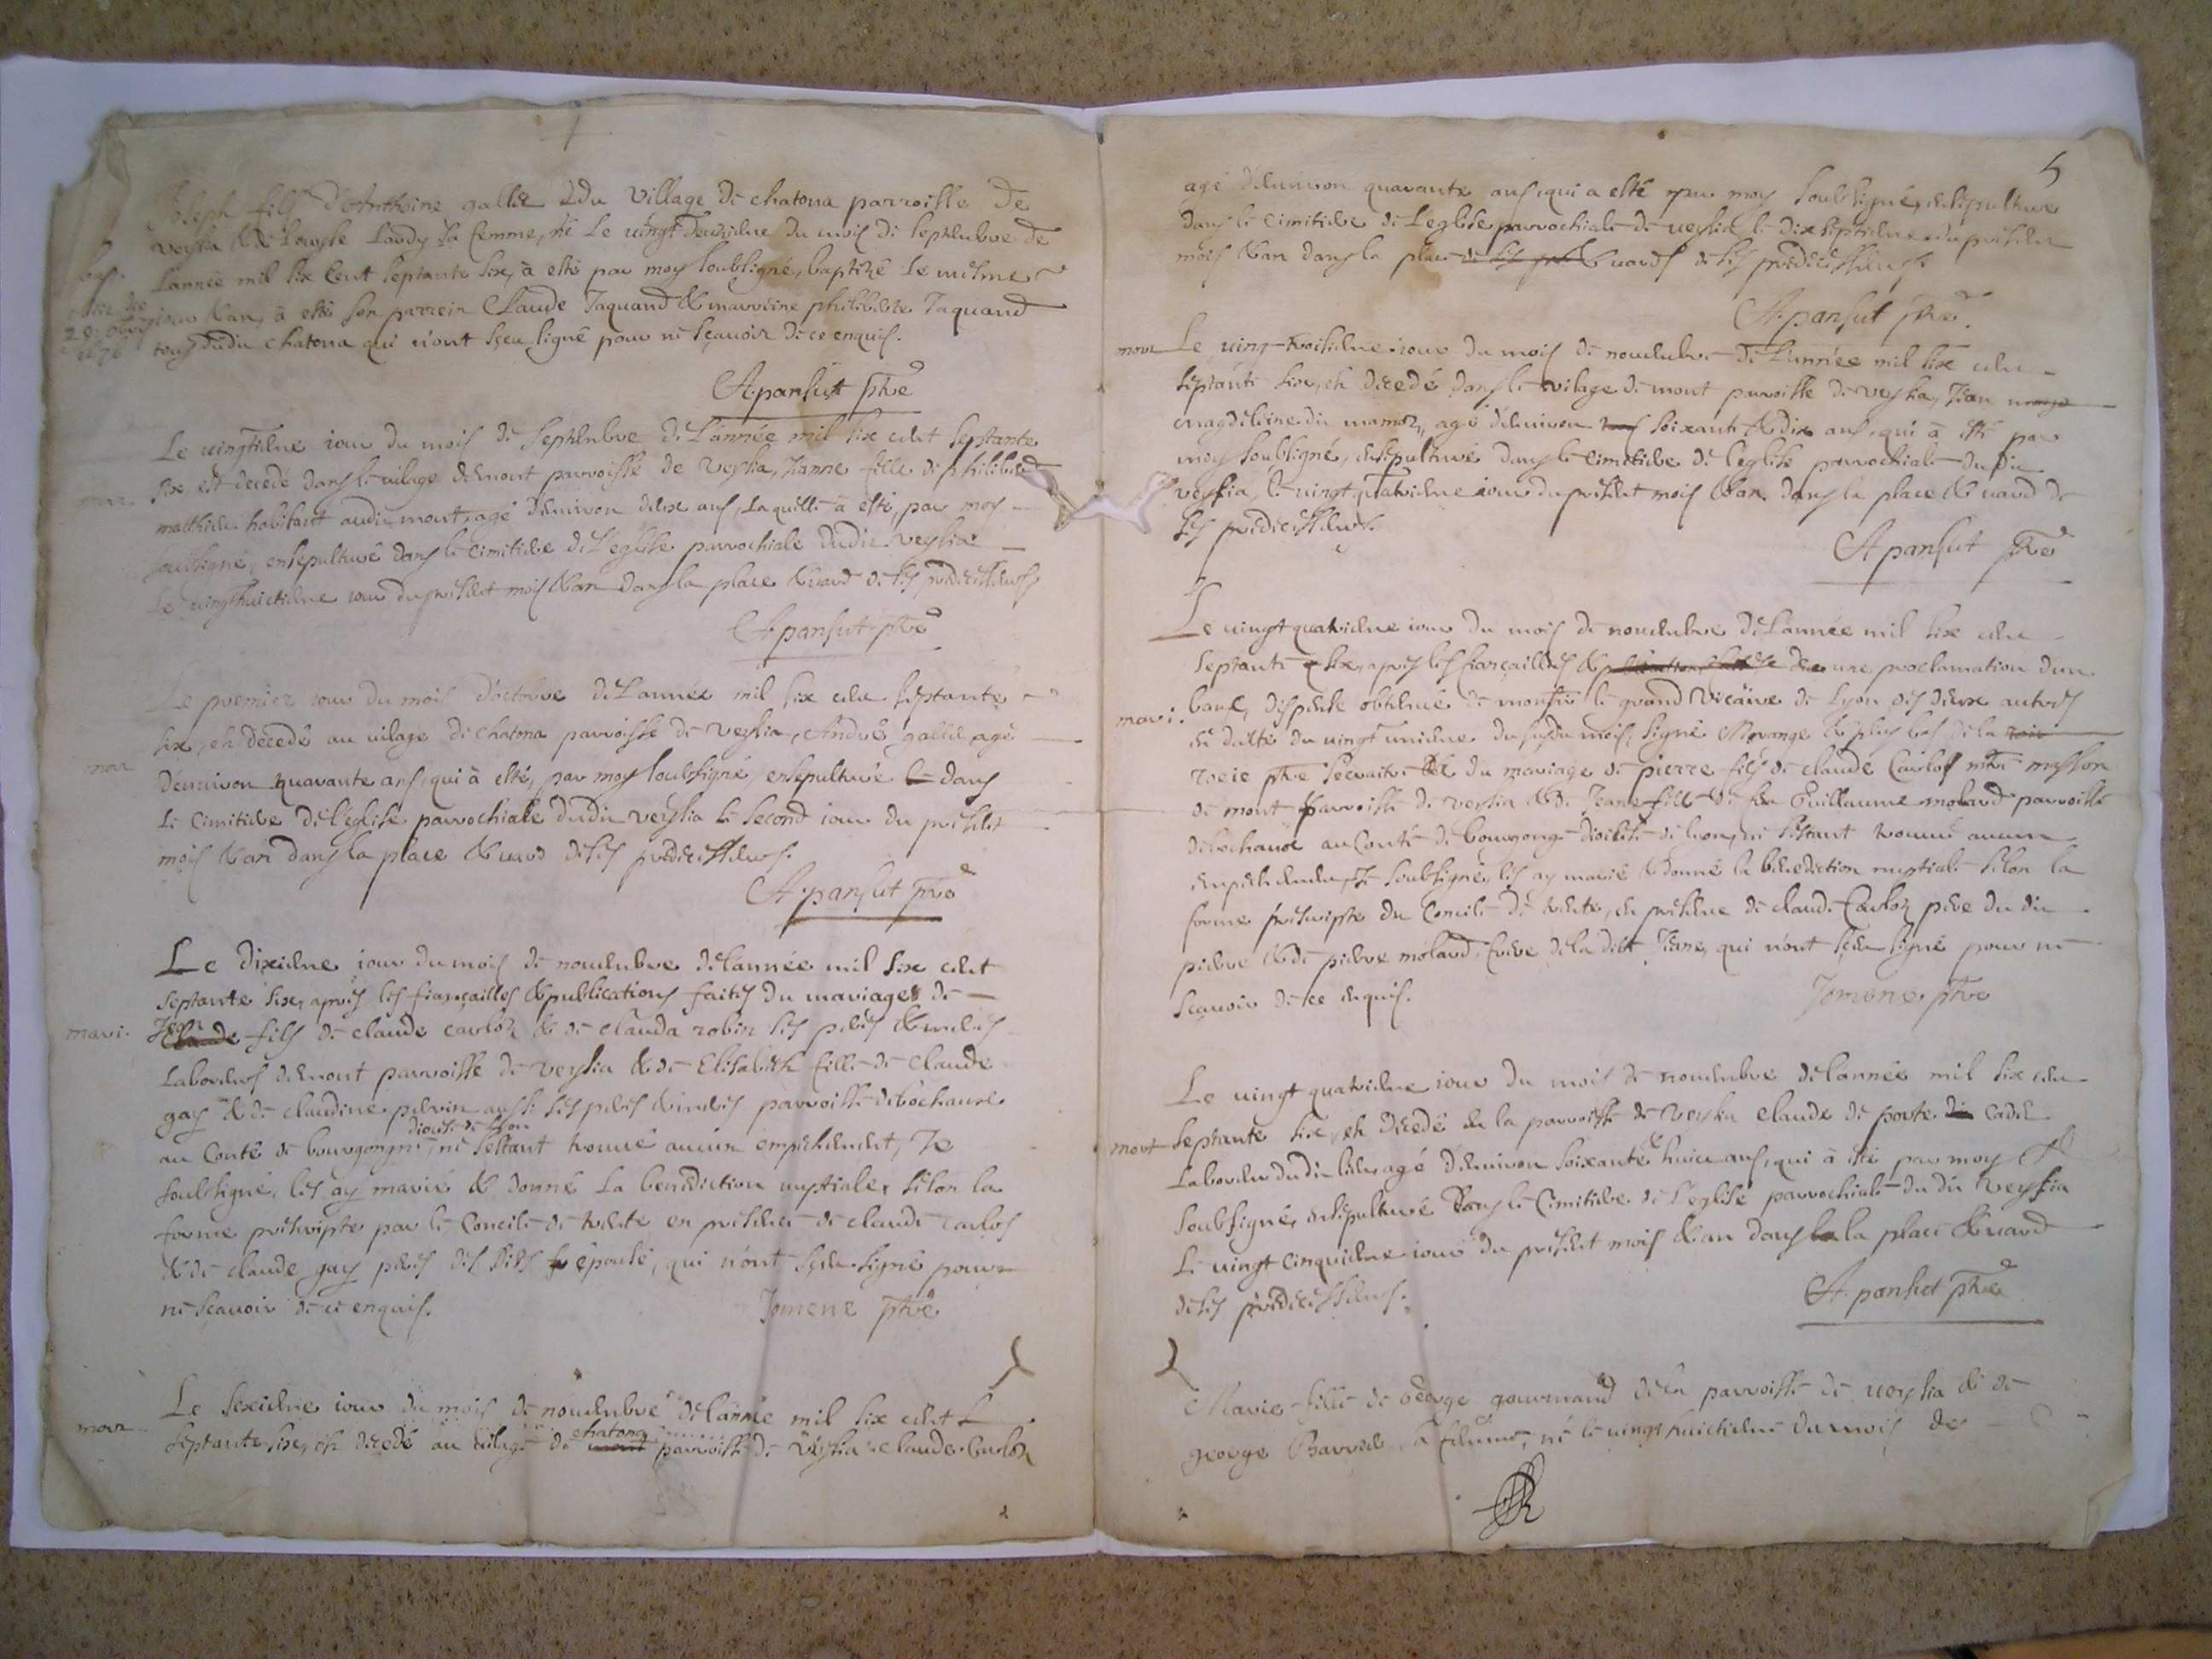 Joseph fils d'Anthoine gallie dudu village de chatona parroisse de
veyssia & de Louyse Landy sa femme, né le vingt deuxieme du mois de septembre de
bap.
l'année mil six cent septante six, à esté par moy soubsigné, baptizé le mesme
jour & an, à esté son parrein Claude Jaquand & marreine philiberte Jaquand
tous dudit chatona qui n'ont sçeu signé pour ne sçavoir de ce enquis.
A. pansut ptre
Le vingtieme iour du mois de septembre de l'année mil six cent septante
mor
six est decedé dans le vilage de mont parroisse de veyssia, Jeanne fille de philibert
matthieu habitant audit mont, agé d'environ deux ans, laquelle à esté, par moy
soubsigné, ensepulturé dans le cimitiere de l'eglise parrochiale dudit veyssia
le vingt huictieme iour du present mois & an dans la place & vard de ses predecesseurs
A. pansut ptre
Le premier iour du mois d'octobre de l'année mil six cent septante
six, est decedé au vilage de chatona parroisse de veyssia, André gallie agé
mor
d'environ quarante ans, qui à esté, par moy soubsigné, ensepulturé dans
le cimitiere de l'eglise parrochiale dudit veyssia le second iour du present
mois & an dans la place & vard de ses predecesseurs.
A. pansut ptre
Le dixieme iour du mois de novembre de l'année mil six cent
septante six, apres les fiançailles & publications faites du mariage de
mari.
Jean
Claude fils de claude carloz & de clauda robin ses peres & meres
laboreurs de mont parroisse de veyssia & de Elisabeth fille de claude
gay & de claudine perrin aussi ses peres & meres parroisse de
diocese de Lyon
au Conté de bourgongne, ne s'estant trouvé aucun empechement, Je
soubsigné, les ay marié & donné la benediction nuptiale, selon la
forme prescripte par le Concile de trente en presence de claude carloz
& de claude gay peres des dits épousé, qui n'ont sçeu signé pour
ne sçavoir de ce enquis.
Jomene ptre
mor
Le sexieme iour du mois de novembre de l'année mil six cent
chatona
septante six, est decedé au vilage de mont parroisse de veyssia claude Carloz
5
agé d'environ quarante ans, qui a esté par moy soubsigné, ensepulturé
dans le cimitiere de l'eglise parrochiale de veyssia le dix septieme du present
mois & an dans la place & vard de ses predecesseurs.
A. pansut ptre
mor
Le vingt troisieme iour du mois de novembre de l'année mil six cent
septante six, est decedé dans le vilage de mont parroisse de veyssia, Jean
magdeleine du mamoz, agé d'environ soixante & dix ans, qui à esté par
moy soubsigné, ensepulturé dans le cimitiere de l'eglise parrochiale dudit
veyssia, le vingt quatrieme iour du present mois & an dans la place & vard de
ses predecesseurs.
A. pansut ptre
Le vingt quatrieme iour du mois de novembre de l'année mil six cent
septante six, apres les fiançailles & une proclamation d'un
mari.
banc, dispense obtenue de monsr le grand vicaire de Lyon des deux autres
en datte du vingt unieme du susdit mois, signé Morange & plus bas de la
roeie ptre secretaire du mariage de pierre fils de claude Carloz mtre masson
de mont parroisse de veyssia & de Jeane fille de feu Guillaume molard parroisse
au Conté de bourgongne diocese de lyon, ne s'estant trouvé aucun
empechement, Je soubsigné, les ay marié & donné la benediction nuptiale selon la
forme prescripte du Concile de trente, en presence de claude Carloz pere du dit
pierre & de pierre molard frere de la ditte Jeane, qui n'ont sçeu signé pour ne
sçavoir de ce enquis.
Jomene ptre
Le vingt quatrieme iour du mois de novembre de l'année mil six cent
mort
septante six, est decedé en la parroisse de veyssia claude de porte cadet
laboreur du dit lieu, agé d'environ soixante & huict ans, qui à esté par moy
soubsigné, ensepulturé dans le cimitiere de l'eglise parrochiale du dit veyssia
le vingt cinquieme iour du present mois & an dans la place & vard
de ses predecesseurs.
A. pansut ptre
Marie fille de George gourmand de la parroisse de veyssia & de
george sa femme, né le vingt huictieme du mois de